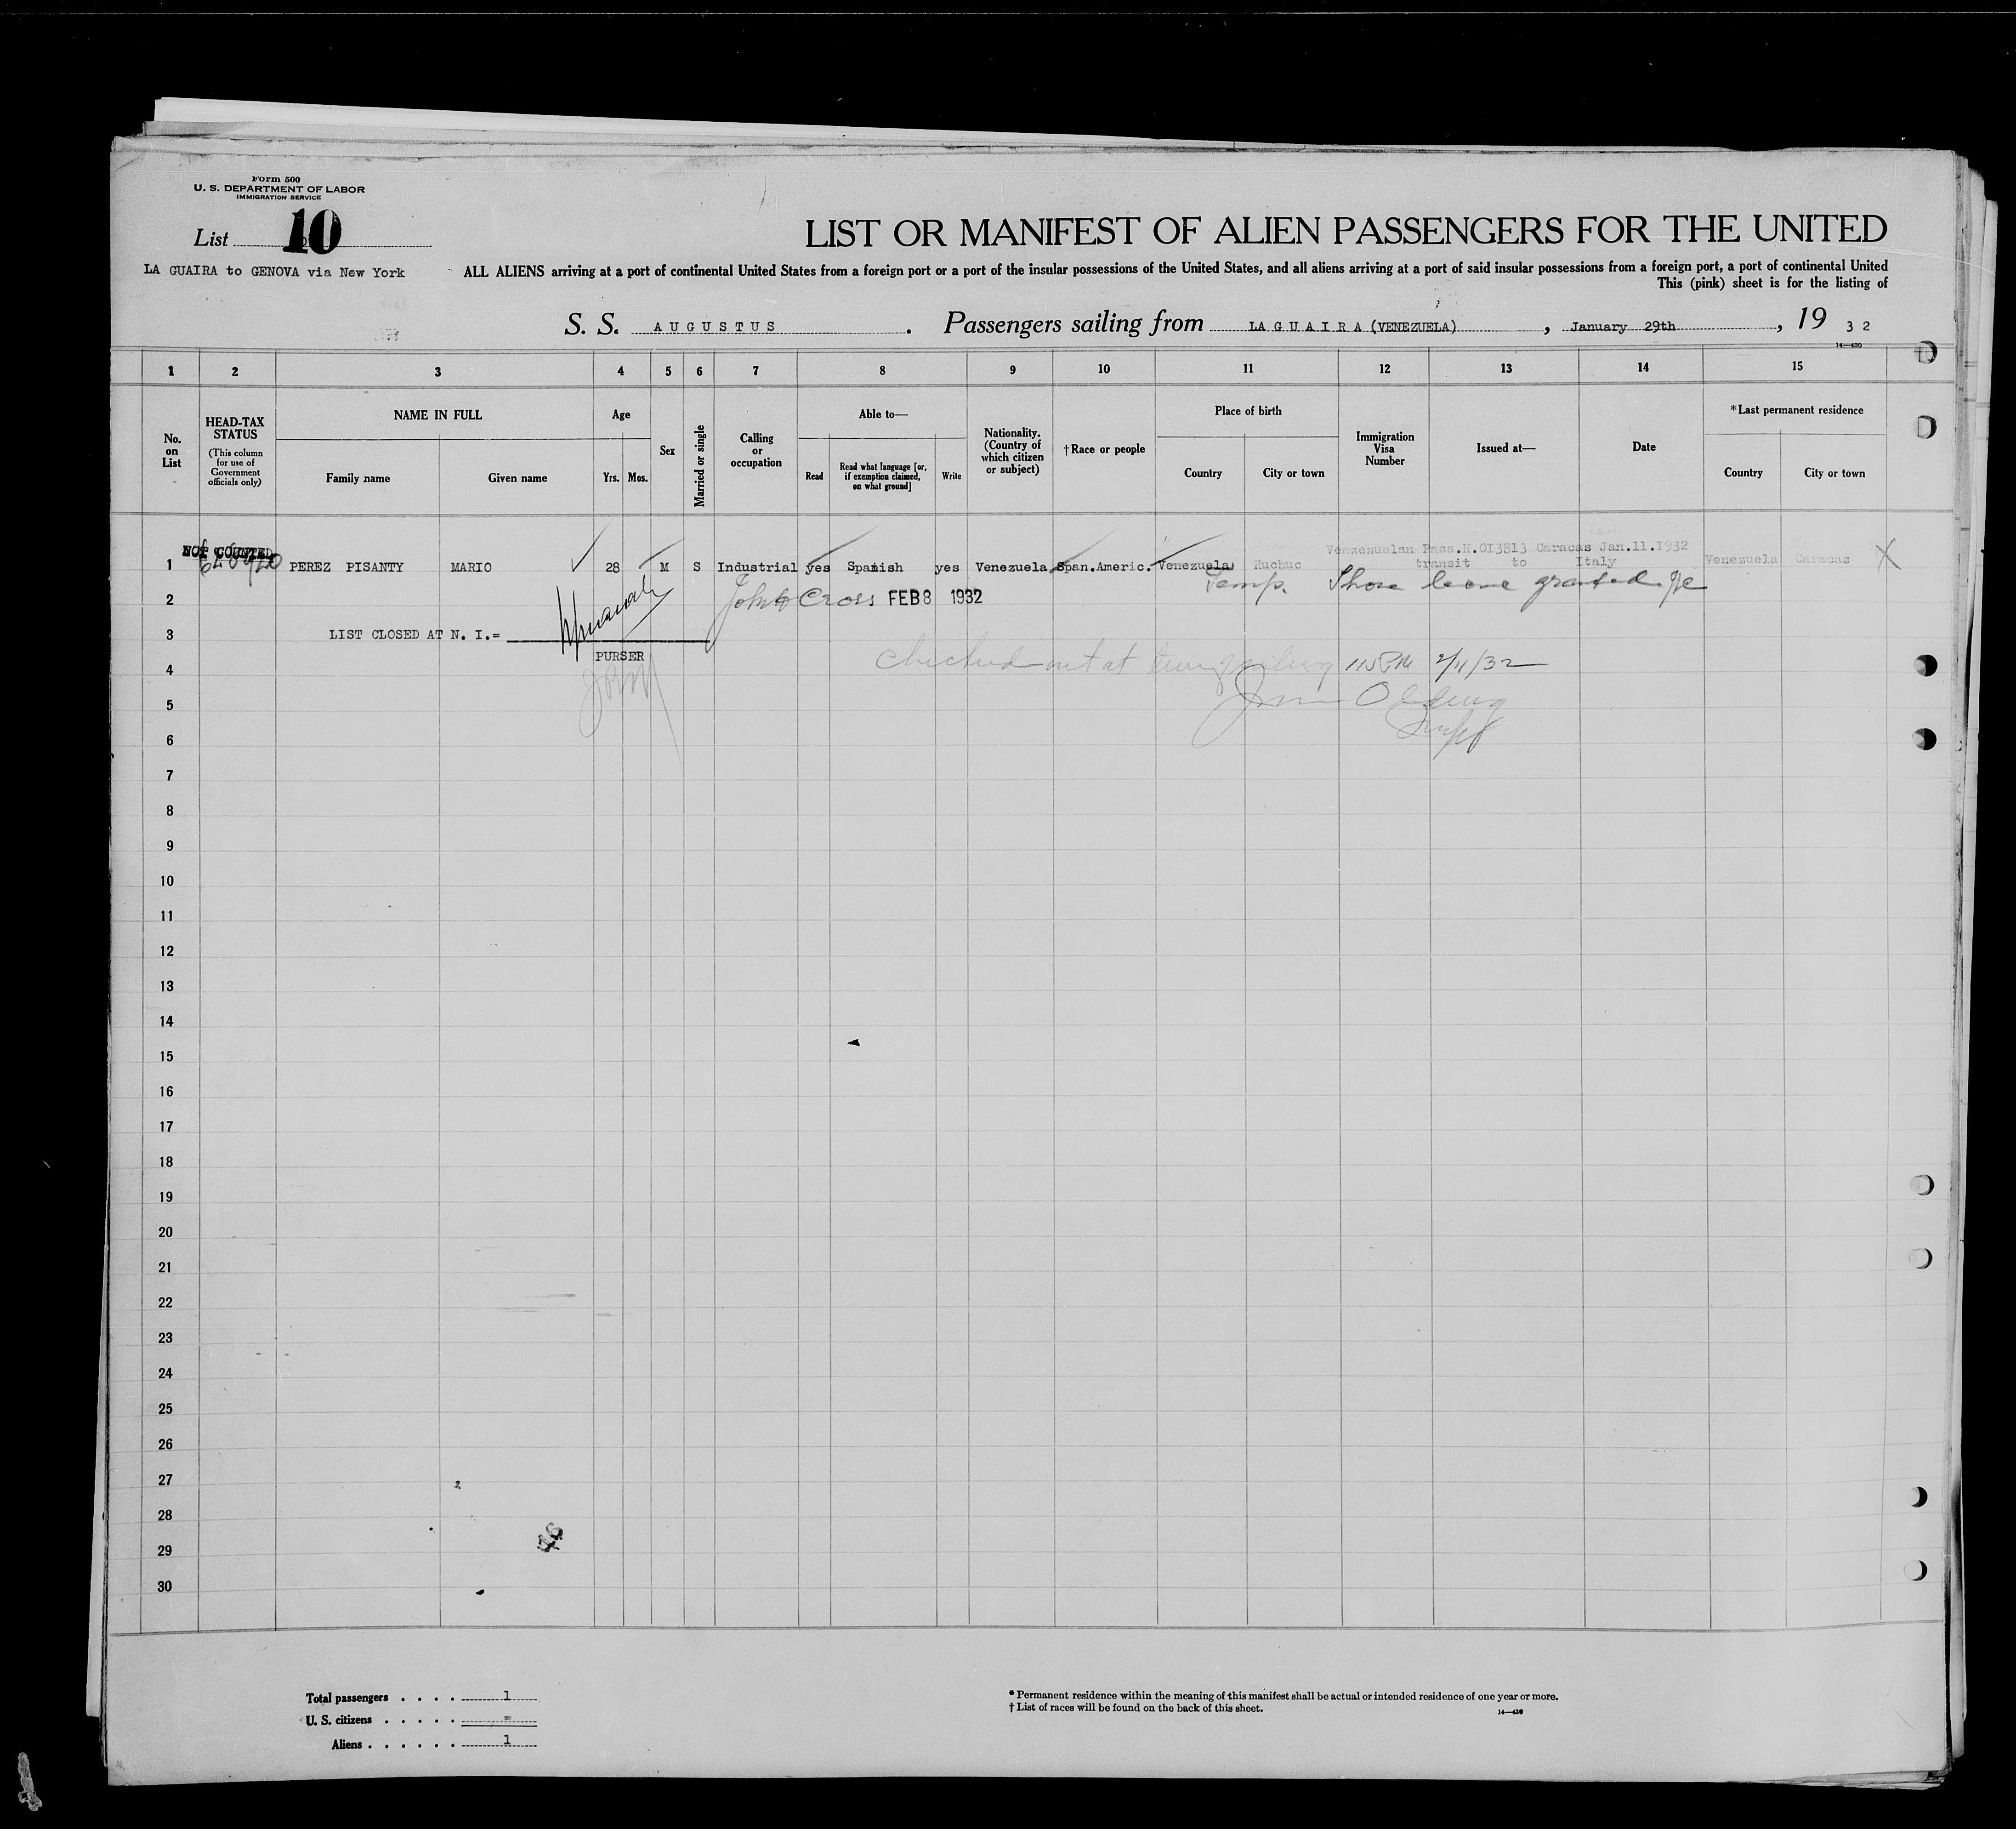 Form 500
U. S. DEPARTMENT OF LABOR
IMMIGRATION SERVICE
List 10
LIST OR MANIFEST OF ALIEN PASSENGERS FOR THE UNITED
LA GUAIRA to GENOVA via New York
ALL ALIENS arriving at a port of continental United States from a foreign port or a port of the insular possessions of the United States, and all aliens arriving at a port of said insular possessions from a foreign port, a port of continental United
This (pink) sheet is for the listing of
S. S. AUGUSTUS. Passengers sailing from LA GUAIRA (VENEZUELA), January 29th, 19 32
14—430
1 2 3 4 5 6 7 8 9 10 11 12 13 14 15
No. on List
HEAD-TAX STATUS
(This column for use of Government officials only)
NAME IN FULL
Family name
Given name
Age
Yrs. Mos.
Sex
Married or single
Calling or occupation
Able to—
Read
Read what language [or, if exemption claimed, on what ground]
Write
Nationality. (Country of which citizen or subject)
† Race or people
Place of birth
Country
City or town
Immigration Visa Number
Issued at—
Date
*Last permanent residence
Country
City or town
Venzezuelan Pass.N.013813 Caracas Jan.11.1932
1 NOT COUNTED PEREZ PISANTY MARIO 28 M S Industrial yes Spanish yes Venezuela Span.Americ. Venezuela Ruchuc transit to Italy Venezuela Caracas X
Temp. Shore leave granted
2 Cross FEB 8 1932
3 LIST CLOSED AT N. I.=
PURSER
4 at 2/11/32
5
6
7
8
9
10
11
12
13
14
15
16
17
18
19
20
21
22
23
24
25
26
27
28
29
30
Total passengers . . . . 1
U. S. citizens . . . . . =
Aliens . . . . . . 1
* Permanent residence within the meaning of this manifest shall be actual or intended residence of one year or more.
† List of races will be found on the back of this sheet.
14—430